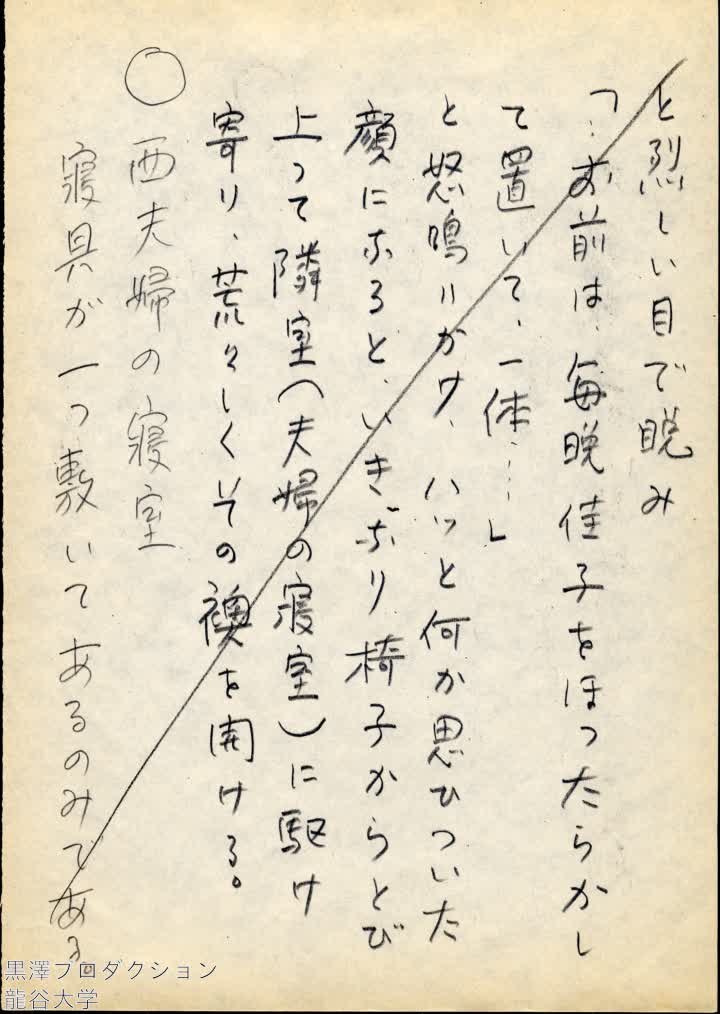 と烈しい目で睨み
「…お前は、毎晩佳子をほったらかし
て置いて、一体……」
と怒鳴りかけ、ハッと何か思ひついた
顔になると、いきなり椅子からとび
上って隣室（夫婦の寝室）に駆け
寄り、荒々しくその襖を開ける。
○西夫婦の寝室
寝具が一つ敷いてあるのみである。
黒澤プロダクション
龍谷大学